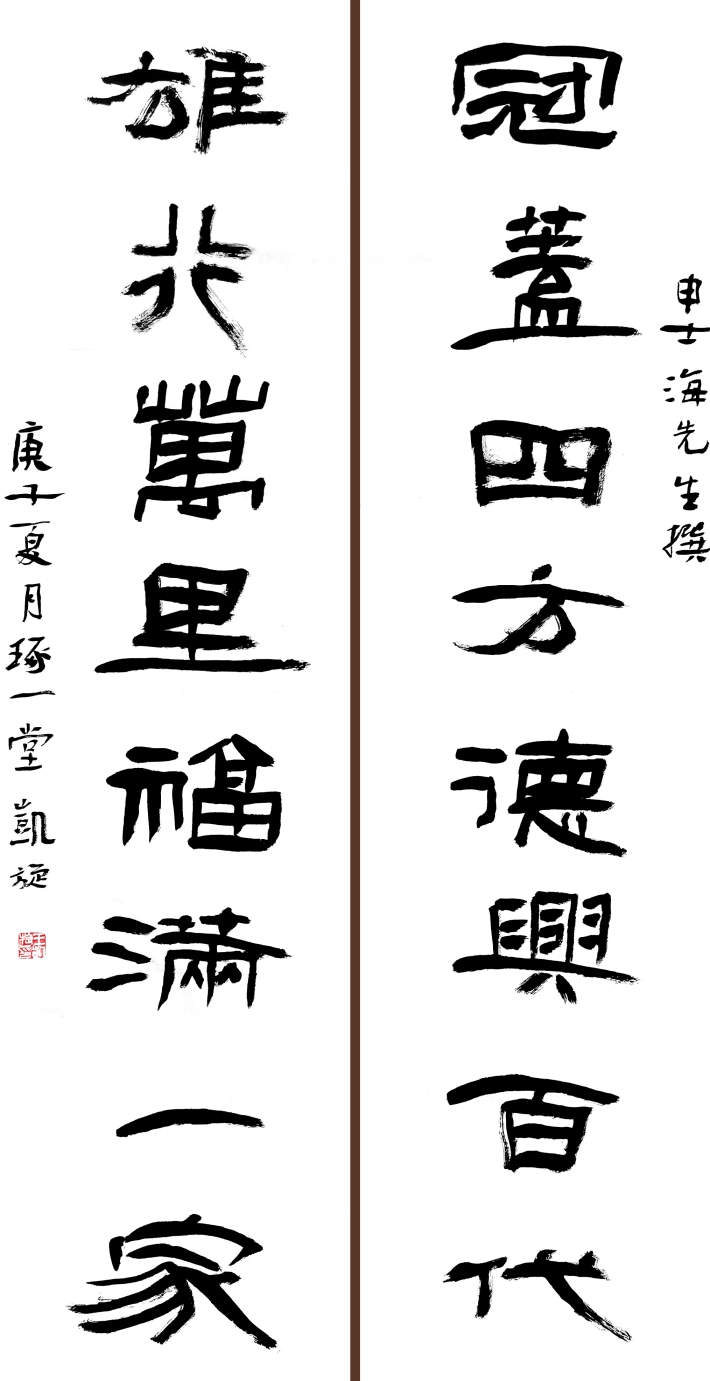 申士海先生撰
冠蓋四方德興百代
雄行萬里福滿一家
庚子夏月琢一堂凱旋